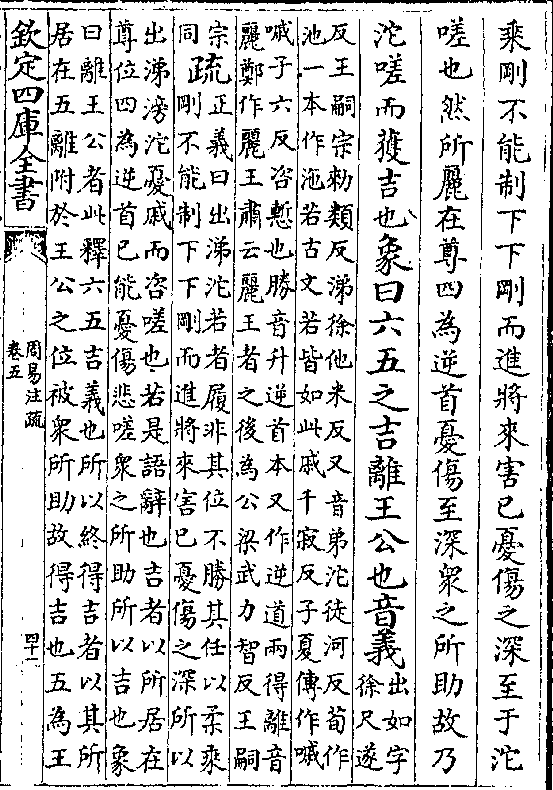 乘剛不能制下下剛而進將來害已憂傷之深至于沱
嗟也然所麗在尊四為逆首憂傷至深衆之所助故乃
沱嗟而獲吉也象曰六五之吉離王公也音義
出如字
徐尺遂
反王嗣宗勑類反涕徐他米反又音弟沱徒河反荀作
池一本作沲若古文若皆如此戚千寂反子夏傳作嘁
嘁子六反咨慙也勝音升逆首本又作逆道兩得離音
麗鄭作麗王肅云麗王者之後為公梁武力智反王嗣
宗
同
疏
正義曰出涕沱若者履非其位不勝其任以柔乘
剛不能制下下剛而進將來害已憂傷之深所以
出涕滂沱憂戚而咨嗟也若是語辭也吉者以所居在
尊位四為逆首已能憂傷悲嗟衆之所助所以吉也象
曰離王公者此釋六五吉義也所以終得吉者以其所
居在五離附於王公之位被衆所助故得吉也五為王
欽定四庫全書
周易注疏
卷五
四十一